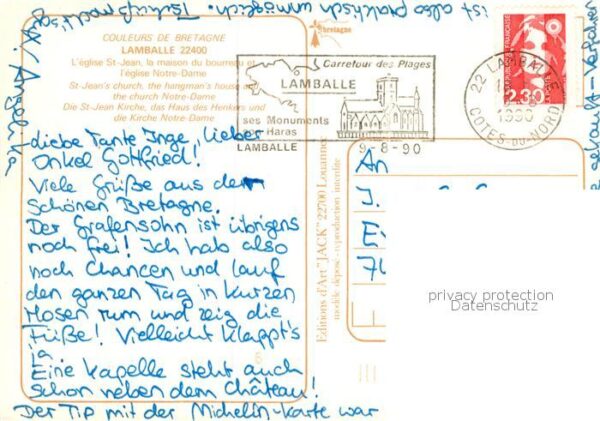 COULEURS DE BRETAGNE
LAMBALLE 22400
L'église St-Jean, la maison du bourreau et
l'église Notre-Dame
St-Jean's church, the hangman's house and
the church Notre-Dame
Die St-Jean Kirche, das Haus des Henkers und
die Kirche Notre-Dame
bretagne
Carrefour des Plages
LAMBALLE
ses Monuments
Haras
LAMBALLE
9-8-90
22 LAMBALLE
1990
COTES-DU-NORD
2,30
Liebe Tante Inge, lieber
Onkel Gottfried!
Viele Grüße aus der
schönen Bretagne.
Der Grafensohn ist übrigens
noch frei! Ich hab also
noch Chancen und lauf
den ganzen Tag in kurzen
Hosen rum und zeig die
Füße! Vielleicht klappt's
ja
Eine Kapelle steht auch
schon neben dem Château!
Der Tip mit der Michelin-Karte war
ist also praktisch unmöglich. Tschüß
Angelika
Editions d'Art "JACK" 22700 Louannec
modèle déposé - reproduction interdite
An
I.
E
privacy protection
Datenschutz